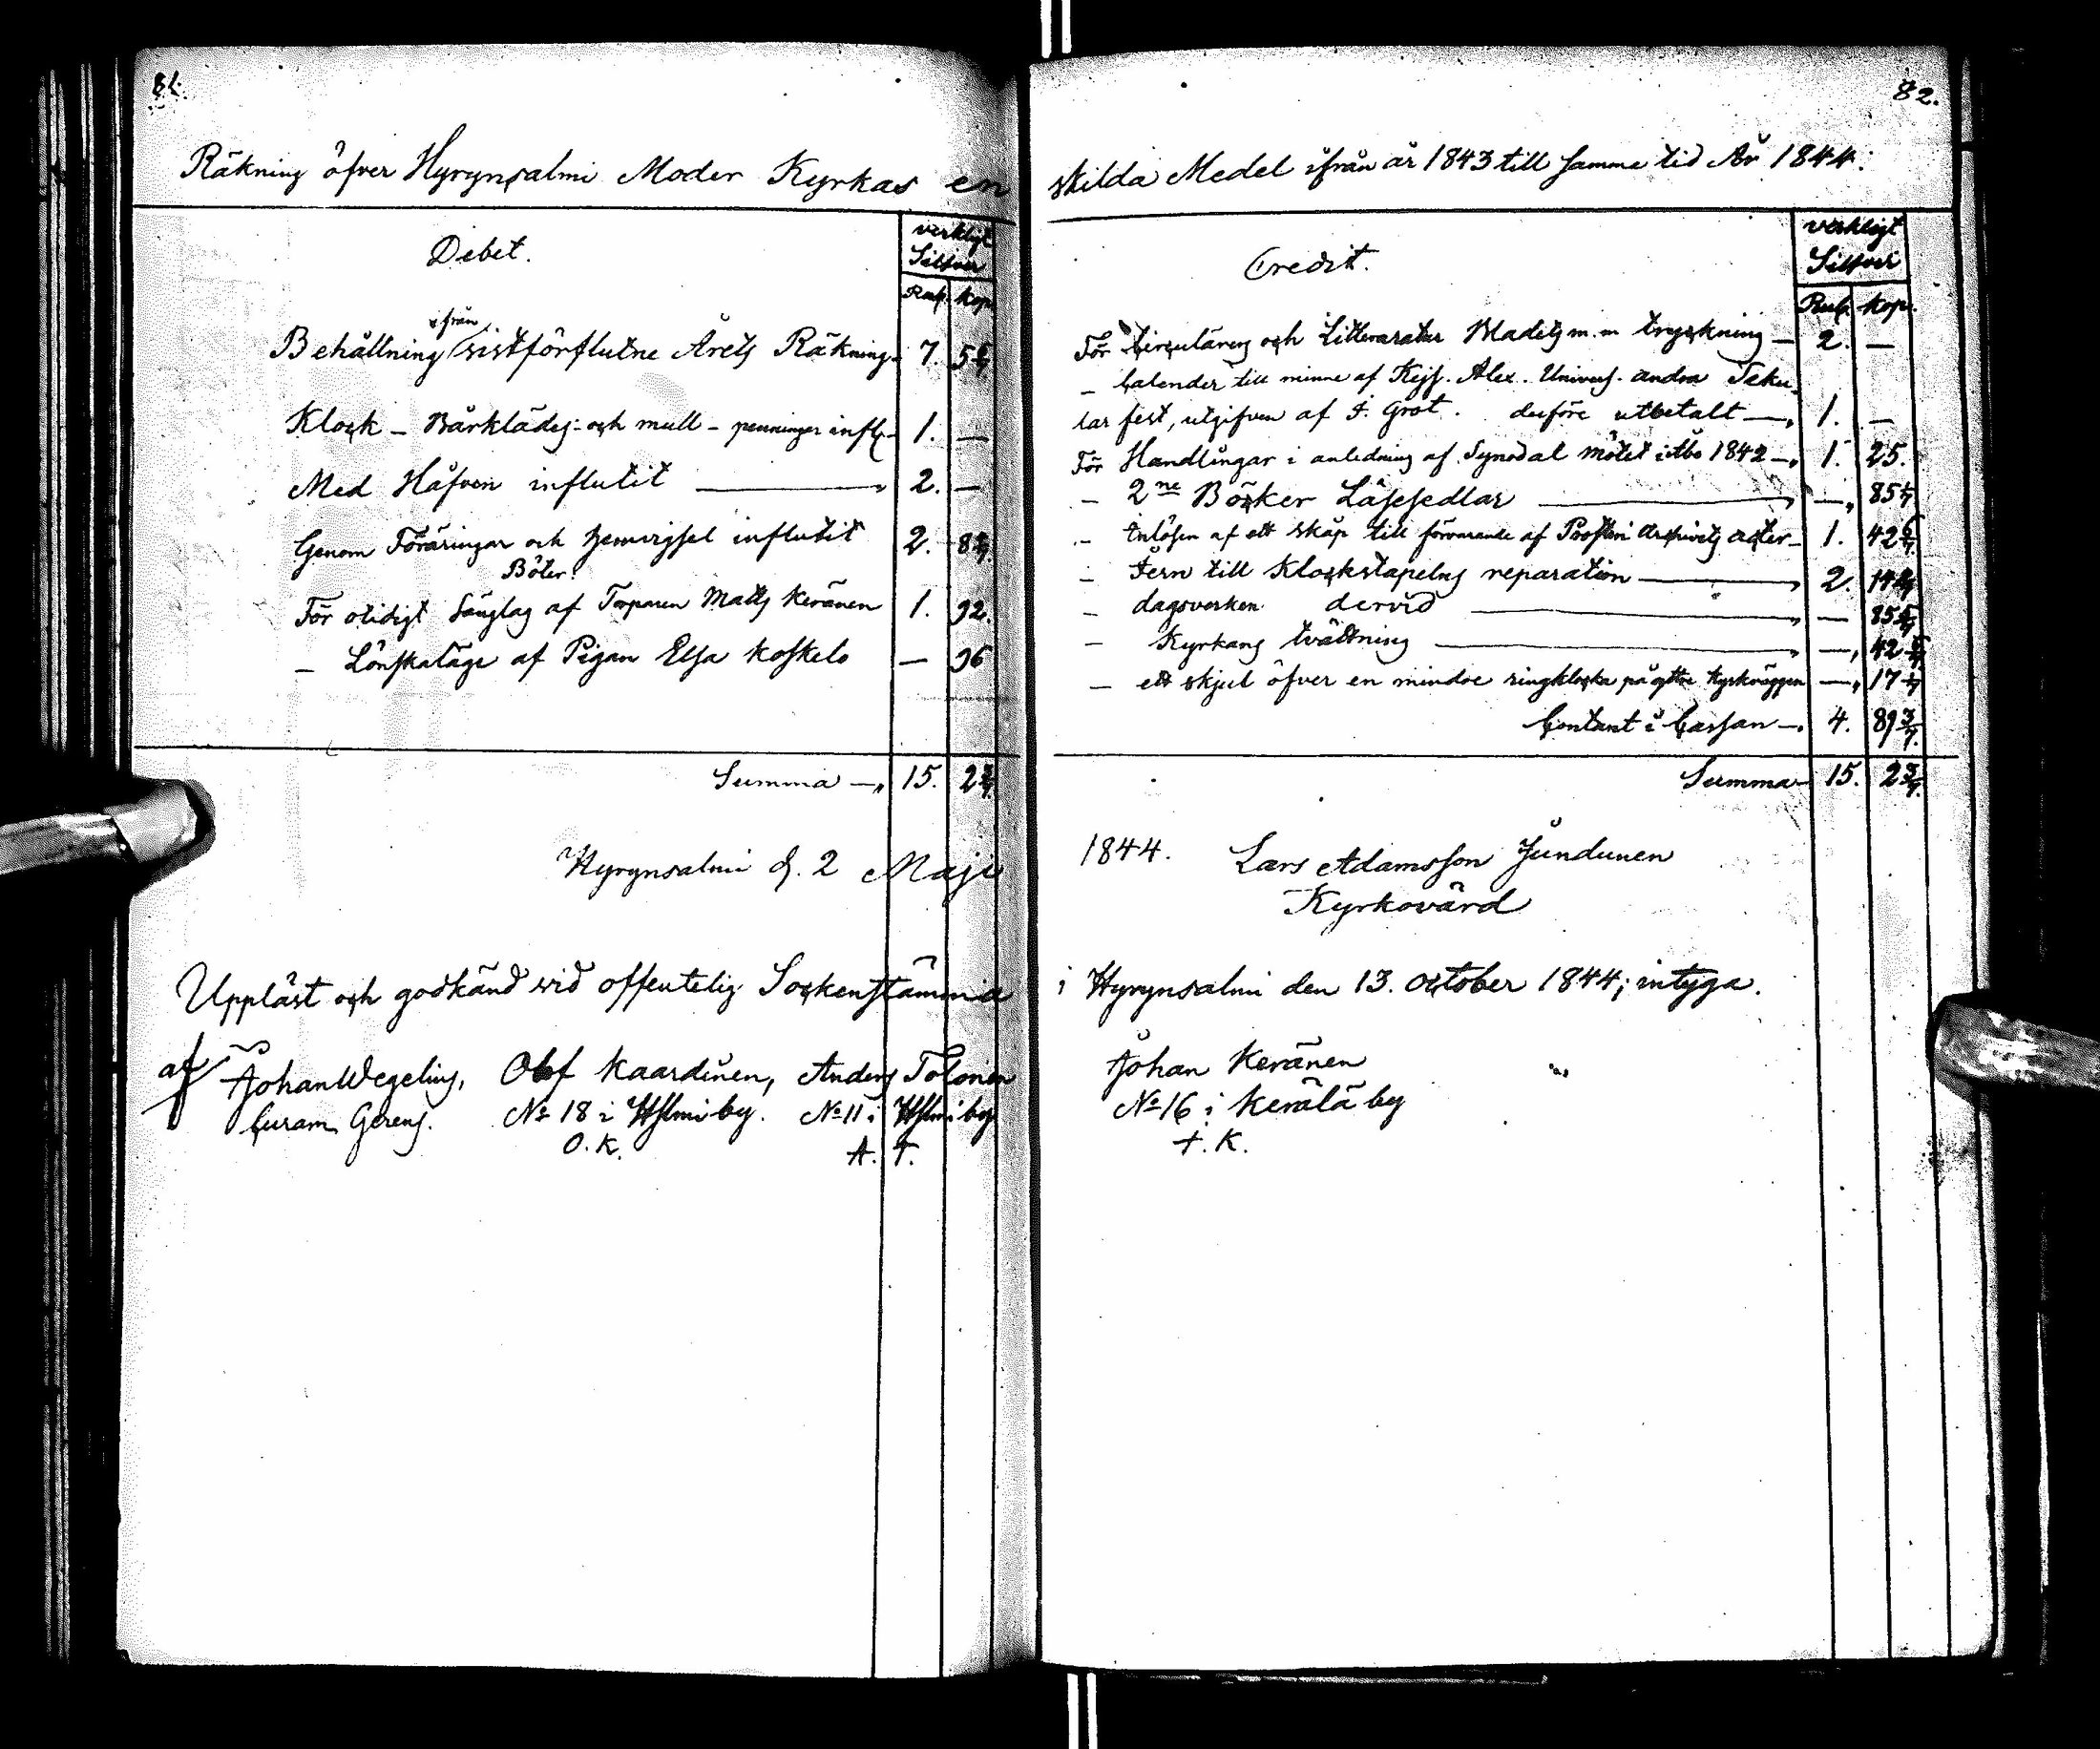 81.
Räkning öfver Hyrynsalmi Moder Kyrkas en
Debet.
verkligt
Silfver
Rub. kop.
ifrån
Behållning sistförflutne Årets Räkning 7. 5 6/7
Klock - Bårklädes- och mull - penningar infl. 1. —
Med Håfven influtit — 2. —
Genom Föräringar och influtit 2. 8 4/7
Böter.
För otidigt Sänglag af Torparen Matts Keränen 1. 92.
— Lönskaläge af Pigan Elsa Koskelo — 96
Summa — 15. 2 3/7
Hyrynsalmi d. 2 Maji
Uppläst och godkänd vid offentelig Sockenstämma
af Johan Wegelius, Olof Kaardinen, Anders Tolonen
Curam Gerens. No 18 i Hslmi by. No 11 i Hslmi by
O. K. A. T.
82.
skilda Medel ifrån år 1843 till samma tid År 1844.
Credit.
verkligt
Silfver
Rub. kop.
För Circulärens och Litteraratur Bladets m.m tryckning — 2. —
— Calender till minne af Kejs. Alex. Univers. andra Seku
lar fest, utgifven af J. Grot. derföre utbetalt — 1. —
För Handlingar i anledning af Synodal mötet i Åbo 1842 — 1. 25.
— 2ne Böcker Läsesedlar — — 85 5/7
— Inlösen af ett skåp till förvarande af Prosteri Archivets acter — 1. 42 6/7
— Jern till Klockstapelns reparation — 2. 14 2/7
— dagsverken dervid — — 85 5/7
— Kyrkans tvättning — — 42 6/7
— ett skjul öfver en mindre ringklocka på yttre kyrkväggen — 17 1/7
Contant i Cassan — 4. 89 3/7.
Summa 15. 2 3/7.
1844. Lars Adamsson Jundunen
Kyrkovärd
i Hyrynsalmi den 13. october 1844; intyga.
Johan Keränen
No 16 i Kerälä by
J. K.